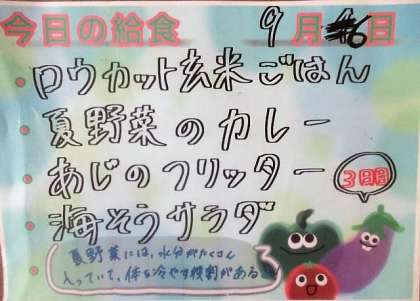 今日の給食 9月6日
・ロウカット玄米ごはん
・夏野菜のカレー
・あじのフリッター 3日目
・海そうサラダ
夏野菜には、水分がたくさん
入っていて、体を冷やす役割がある